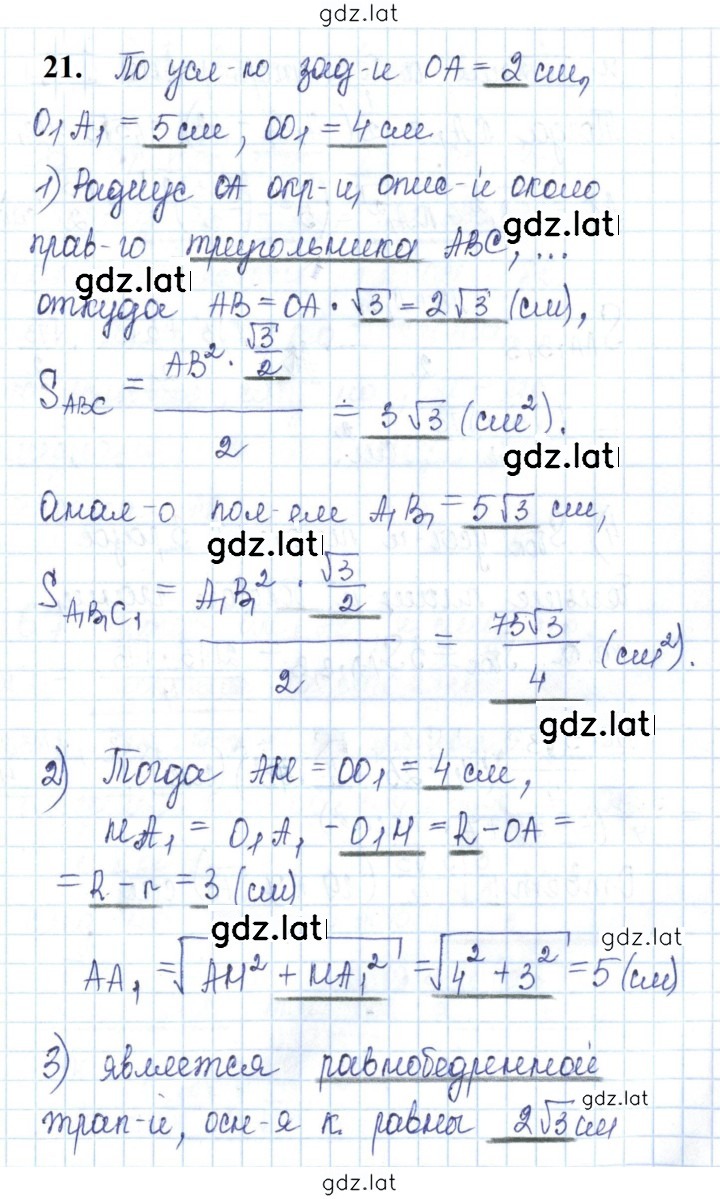 gdz.lat
21. По усл-ю зад-и OA = 2 см,
O₁A₁ = 5 см, OO₁ = 4 см
1) Радиус OA окр-и, опис-й около
gdz.lat
прав-го треугольника ABC, ...
gdz.lat
откуда AB = OA · √3 = 2√3 (см),
S_ABC = (AB² · √3/2) / 2 = 3√3 (см²).
gdz.lat
Анал-о пол-ем A₁B₁ = 5√3 см,
gdz.lat
S_A₁B₁C₁ = (A₁B₁² · √3/2) / 2 = 75√3/4 (см²).
gdz.lat
2) Тогда AM = OO₁ = 4 см,
MA₁ = O₁A₁ - O₁M = R - OA =
= R - r = 3 (см)
gdz.lat
gdz.lat
AA₁ = √(AM² + MA₁²) = √(4² + 3²) = 5 (см)
3) является равнобедренной
gdz.lat
трап-й, осн-я к. равны 2√3 см
gdz.lat